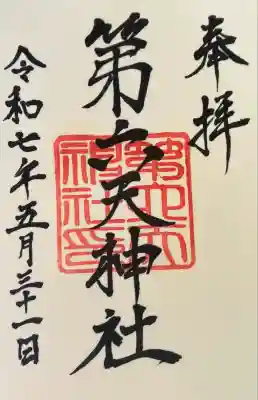 奉拝
第六天神社
第六天
神社印
令和七年五月三十一日